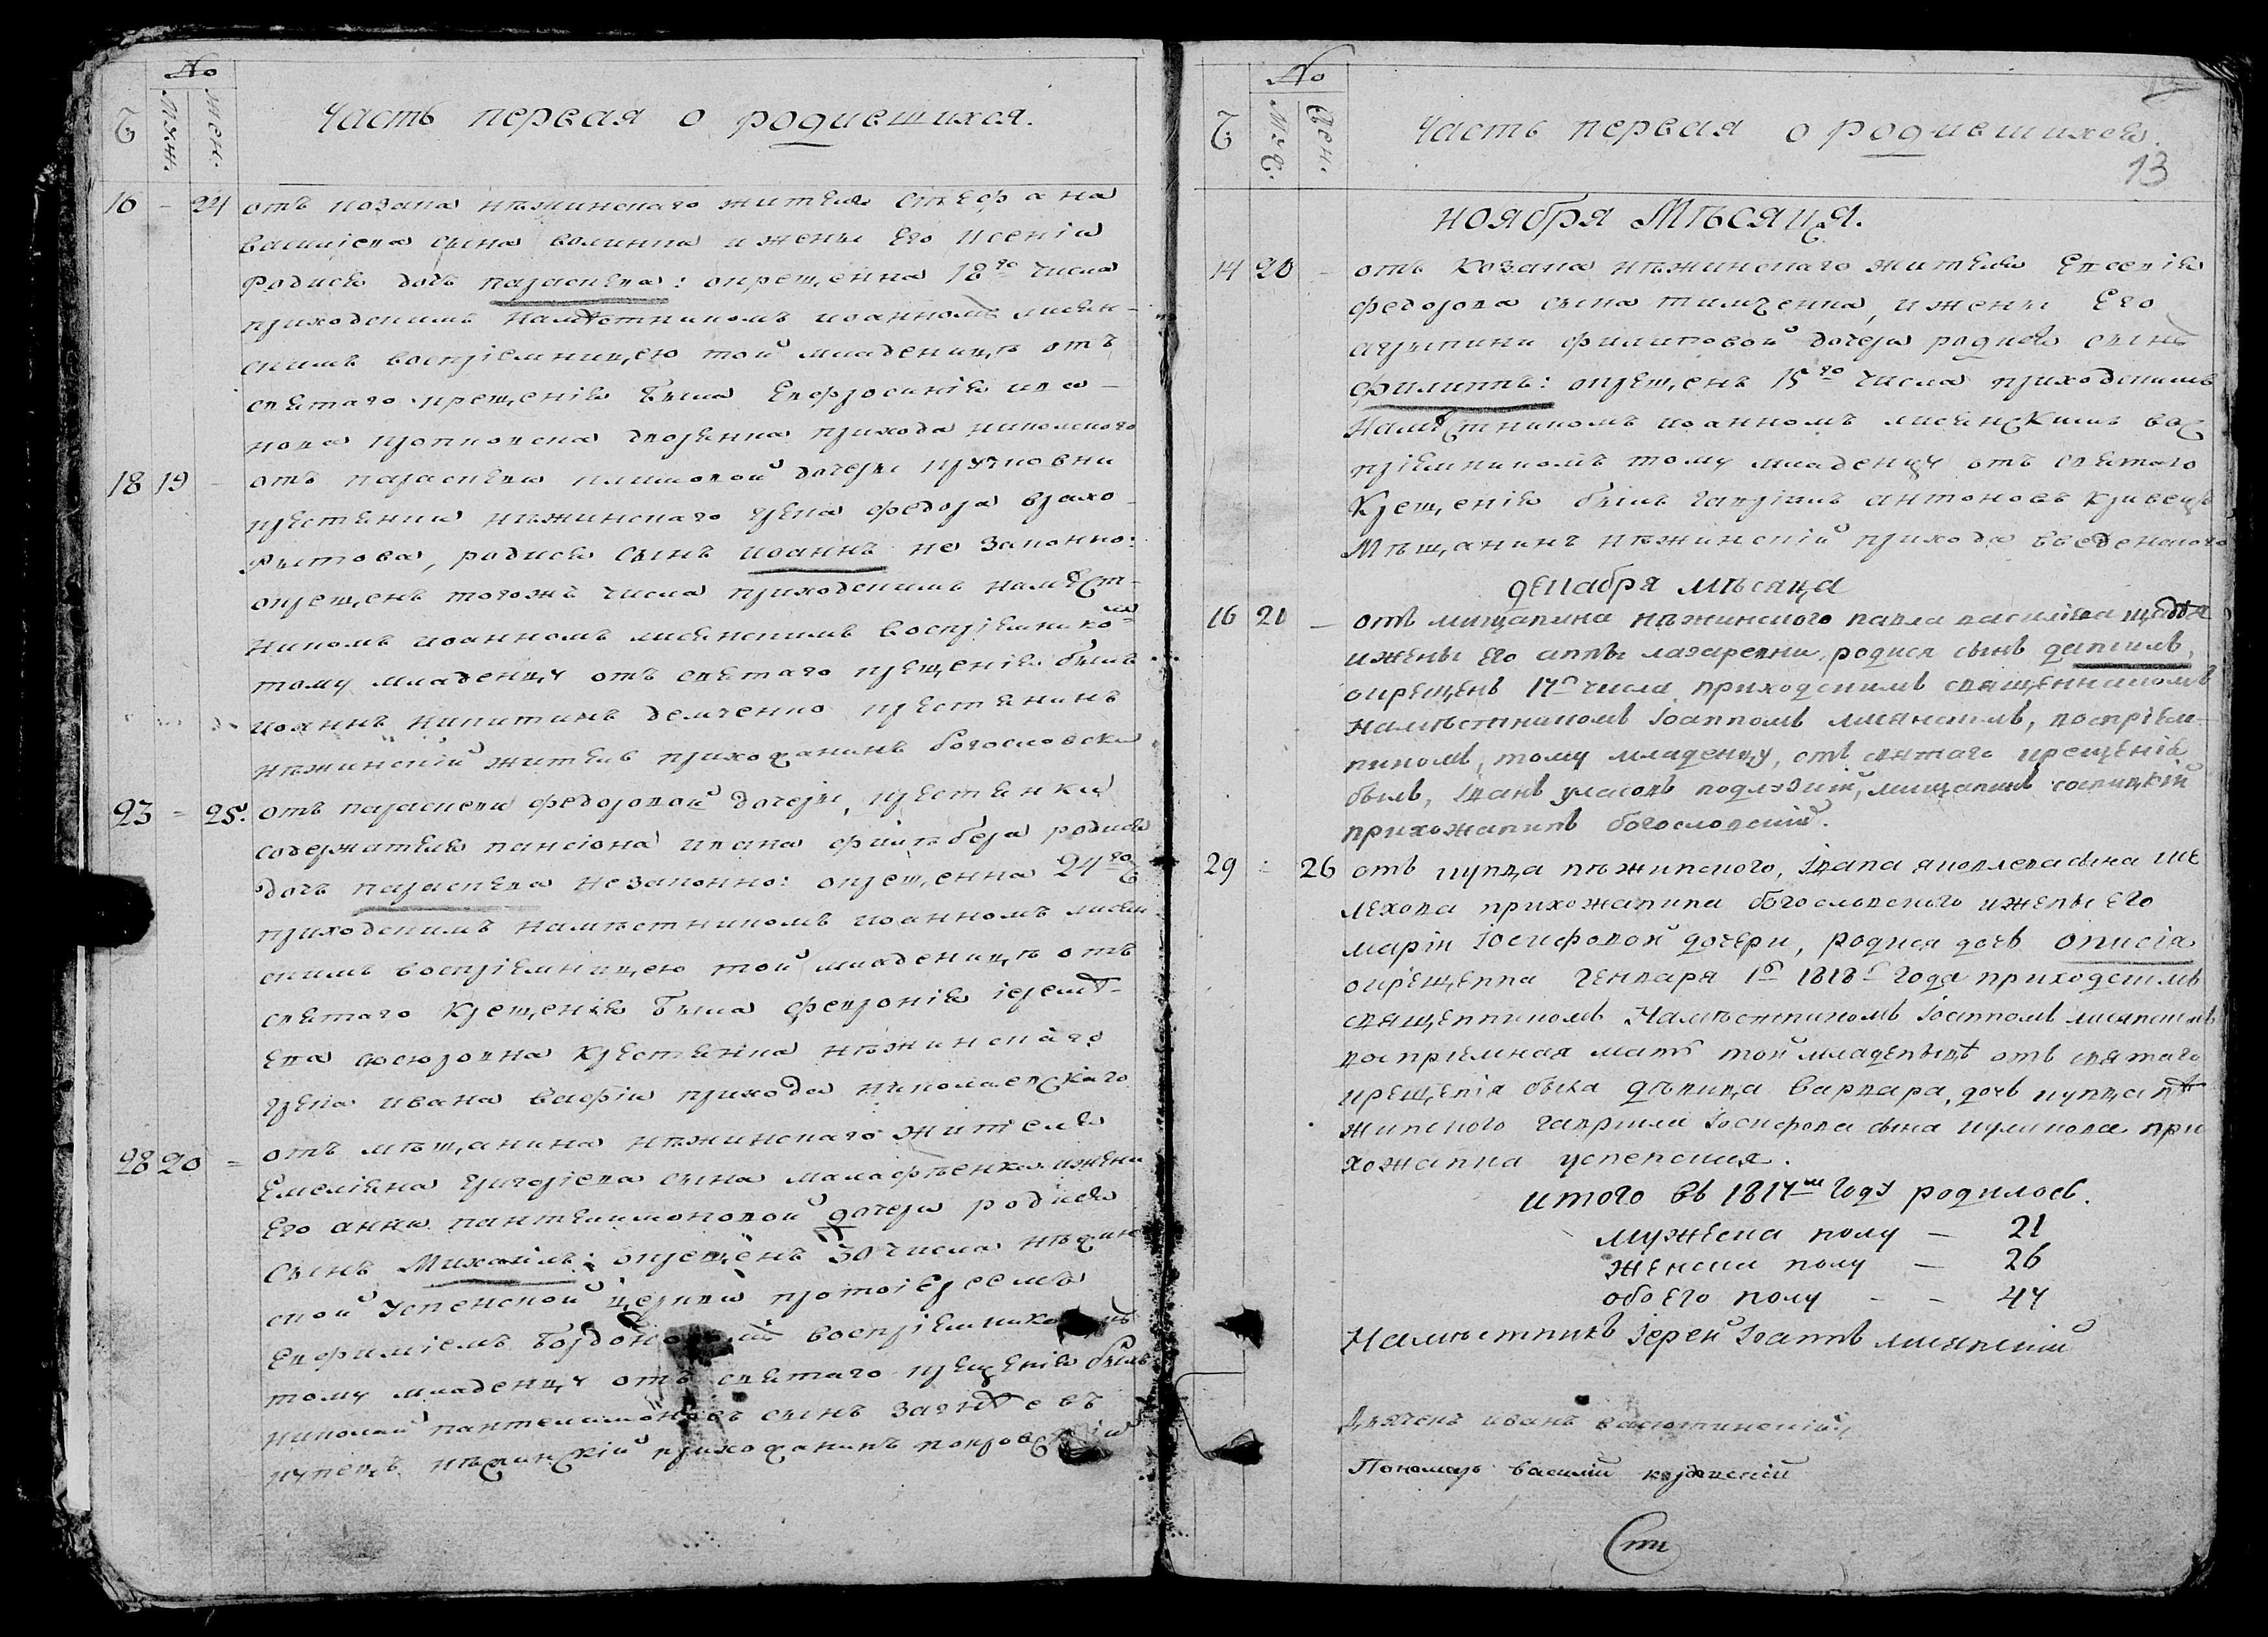 №
Муж.
Жен.
Часть первая о родившихся.
16 – 24 отъ козака нѣжинскаго жителя Стефана
василіева сына волинца и жены Его Ксенія
родися дочь параскева: окрещенна 18го числа
приходскимъ намѣстникомъ иоанномъ лисян-
скимъ воспріемницею той младеницѣ отъ
святаго крещенія была Евфросинія ива-
нова дворянка прихода николского
18 19 – отъ параскевы климовой дочери
крестянки нѣжинскаго грека федора
родися сынъ иоаннъ не законно:
окрещенъ тогожъ числа приходскимъ намѣст-
никомъ иоанномъ лисянскимъ воспріемникомъ
тому младенцу отъ святаго крещенія былъ
иоаннъ никитинъ демченко крестянинъ
нѣжинскій житель прихожанинъ богословски
23 – 25. отъ параскевы федоровой дочери, крестянки
содержателя пансіона ивана родися
дочь параскева незаконно: окрещенна 24го
приходскимъ намѣстникомъ иоанномъ лисян
скимъ воспріемницею той младеницѣ отъ
святаго крещенія была февронія іерем-
ева крестянка нѣжинскаго
грека ивана прихода николаевскаго
28 20 = отъ мѣщанина нѣжинскаго жителя
Емеліяна григоріева сына и жены
Его анны пантелимоновой дочери родися
сынъ Михаилъ: окрещенъ 30 числа нѣжин
ской Успенской церкви протоіереемъ
Евфиміемъ воспріемникомъ
тому младенцу отъ святаго крещенія былъ
николай пантелимоновъ сынъ
купецъ нѣжинскій прихожанинъ покровскій
№
Муж.
Жен.
Часть первая о родившихся.
13
ноября Мѣсяца.
14 20 – отъ козака нѣжинскаго жителя Евсевія
федорова сына тимченка, и жены Его
агрипини филиповой дочери родися сынъ
филиппъ: окрещенъ 15го числа приходскимъ
Намѣстникомъ иоанномъ лисянскимъ вос
пріемникомъ тому младенцу отъ святаго
крещенія былъ гавріилъ антоновъ кривецъ
Мѣщанинъ нѣжинскій прихода введенского
декабря мѣсяца
16 21 – отъ мищанина нѣжинского павла василіева
и жены его анны лазаревни родися сынъ даніилъ,
окрещенъ 17го числа приходскимъ священникомъ
намѣстникомъ Іоанномъ лисянскимъ, воспріем-
никомъ, тому младенцу, отъ святаго крещенія
былъ, Іванъ уласовъ мищанинъ
прихожанинъ богословский.
29 – 26 отъ купца нѣжинского, Івана яковлева сына ше
лехова прихожанина богословского и жены его
маріи Іосифовой дочери, родися дочь онисія
окрещенна генваря 1го 1818г года приходскимъ
священникомъ Намѣстникомъ Іоанномъ лисянскимъ
воспріемная мать той младеницѣ отъ святаго
крещенія была дѣвица варвара, дочь купца нѣ
жинского гавриила Іосифова сына куликова при
хожанка успенския.
итого въ 1817м году родилось.
мужеска полу – 21
женски полу – 26
обоего полу – – 47
Намѣстникъ Іерей Іоаннъ лисянский
Дьячекъ иванъ
Пономарь василий